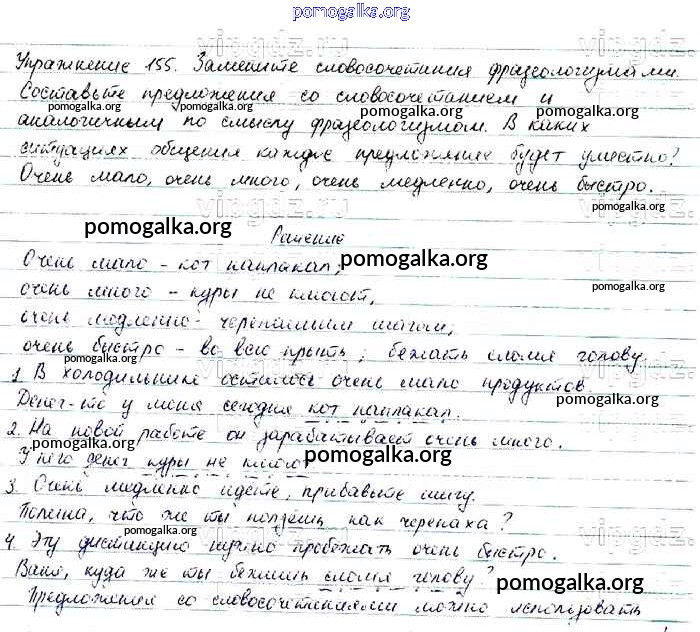 pomogalka.org
Упражнение 155. Замените словосочетания фразеологизмами.
Составьте предложения со словосочетанием и
pomogalka.org pomogalka.org
аналогичным по смыслу фразеологизмом. В каких
ситуациях общения каждое предложение будет уместно?
Очень мало, очень много, очень медленно, очень быстро.
pomogalka.org
vipgdz.ru
pomogalka.org
Решение
Очень мало - кот наплакал,
pomogalka.org
очень много - куры не клюют,
pomogalka.org
очень медленно - черепашьим шагом,
очень быстро - во всю прыть; бежать сломя голову.
pomogalka.org pomogalka.org
1. В холодильнике осталось очень мало продуктов.
Денег-то у меня сегодня кот наплакал.
pomogalka.org
2. На новой работе он зарабатывает очень много.
pomogalka.org
У него денег куры не клюют
pomogalka.org
3. Очень медленно идёте, прибавьте шагу.
Полина, что же ты ползёшь как черепаха?
pomogalka.org
4. Эту дистанцию нужно пробежать очень быстро.
Ваня, куда же ты бежишь сломя голову?
pomogalka.org
Предложения со словосочетаниями можно использовать